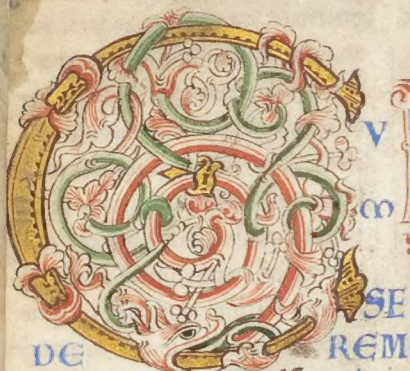 C
V
m
SE
DE REM